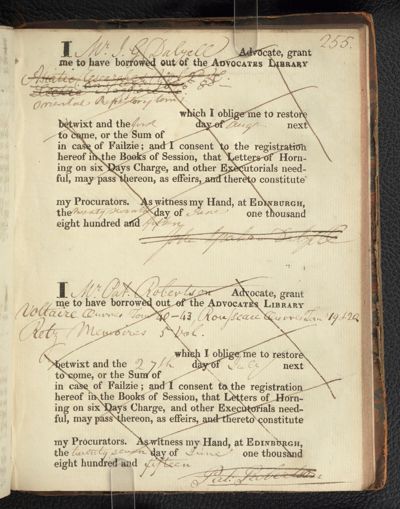 255.
I Mr. J. G. Dalyell Advocate, grant
me to have borrowed out of the ADVOCATES LIBRARY
Asiatic
Oriental Repertory
which I oblige me to restore
betwixt and the day of Augt next
to come, or the Sum of
in case of Failzie; and I consent to the registration
hereof in the Books of Session, that Letters of Horn-
ing on six Days Charge, and other Executorials need-
ful, may pass thereon, as effeirs, and thereto constitute
my Procurators. As witness my Hand, at EDINBURGH,
the twenty seventh day of June one thousand
eight hundred and fifteen
John Graham Dalyell
I Mr. Pat. Robertson Advocate, grant
me to have borrowed out of the ADVOCATES LIBRARY
Voltaire Œuvres Tom 40-43 Rousseau Œuvres Tom 19 & 20
Retz Memoires 5 Vol.
which I oblige me to restore
betwixt and the 27th day of July next
to come, or the Sum of
in case of Failzie; and I consent to the registration
hereof in the Books of Session, that Letters of Horn-
ing on six Days Charge, and other Executorials need-
ful, may pass thereon, as effeirs, and thereto constitute
my Procurators. As witness my Hand, at EDINBURGH,
the twenty seven day of June one thousand
eight hundred and fifteen
Pat: Robertson